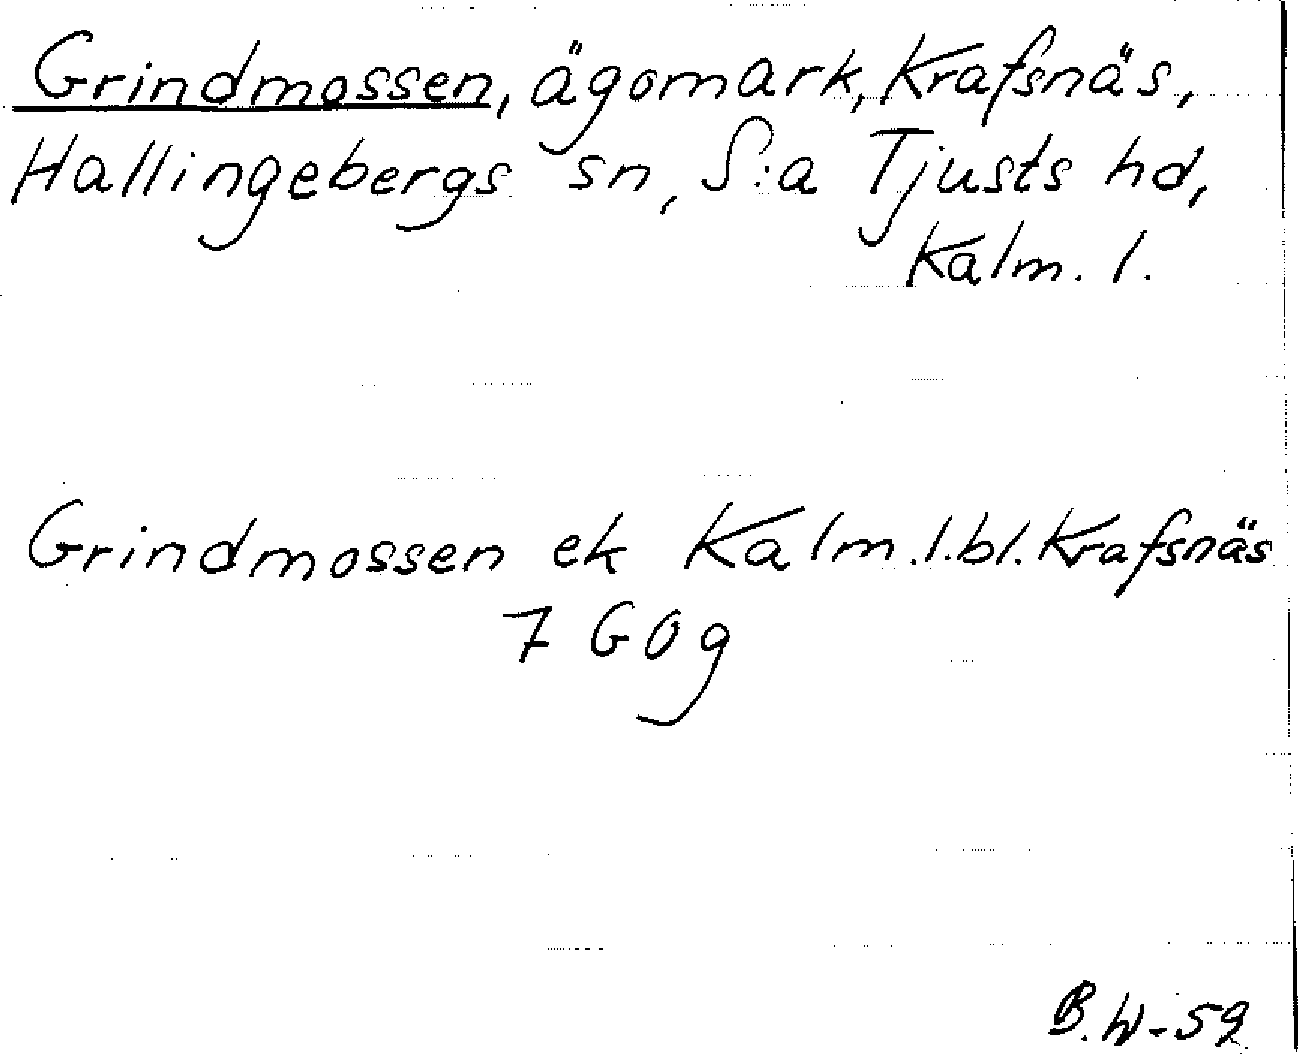 Grindmossen, ägomark, Krafsnäs,
Hallingebergs sn, S:a Tjusts hd,
Kalm. l.
Grindmossen ek Kalm.l.bl. Krafsnäs
7 GOg
B.W-59